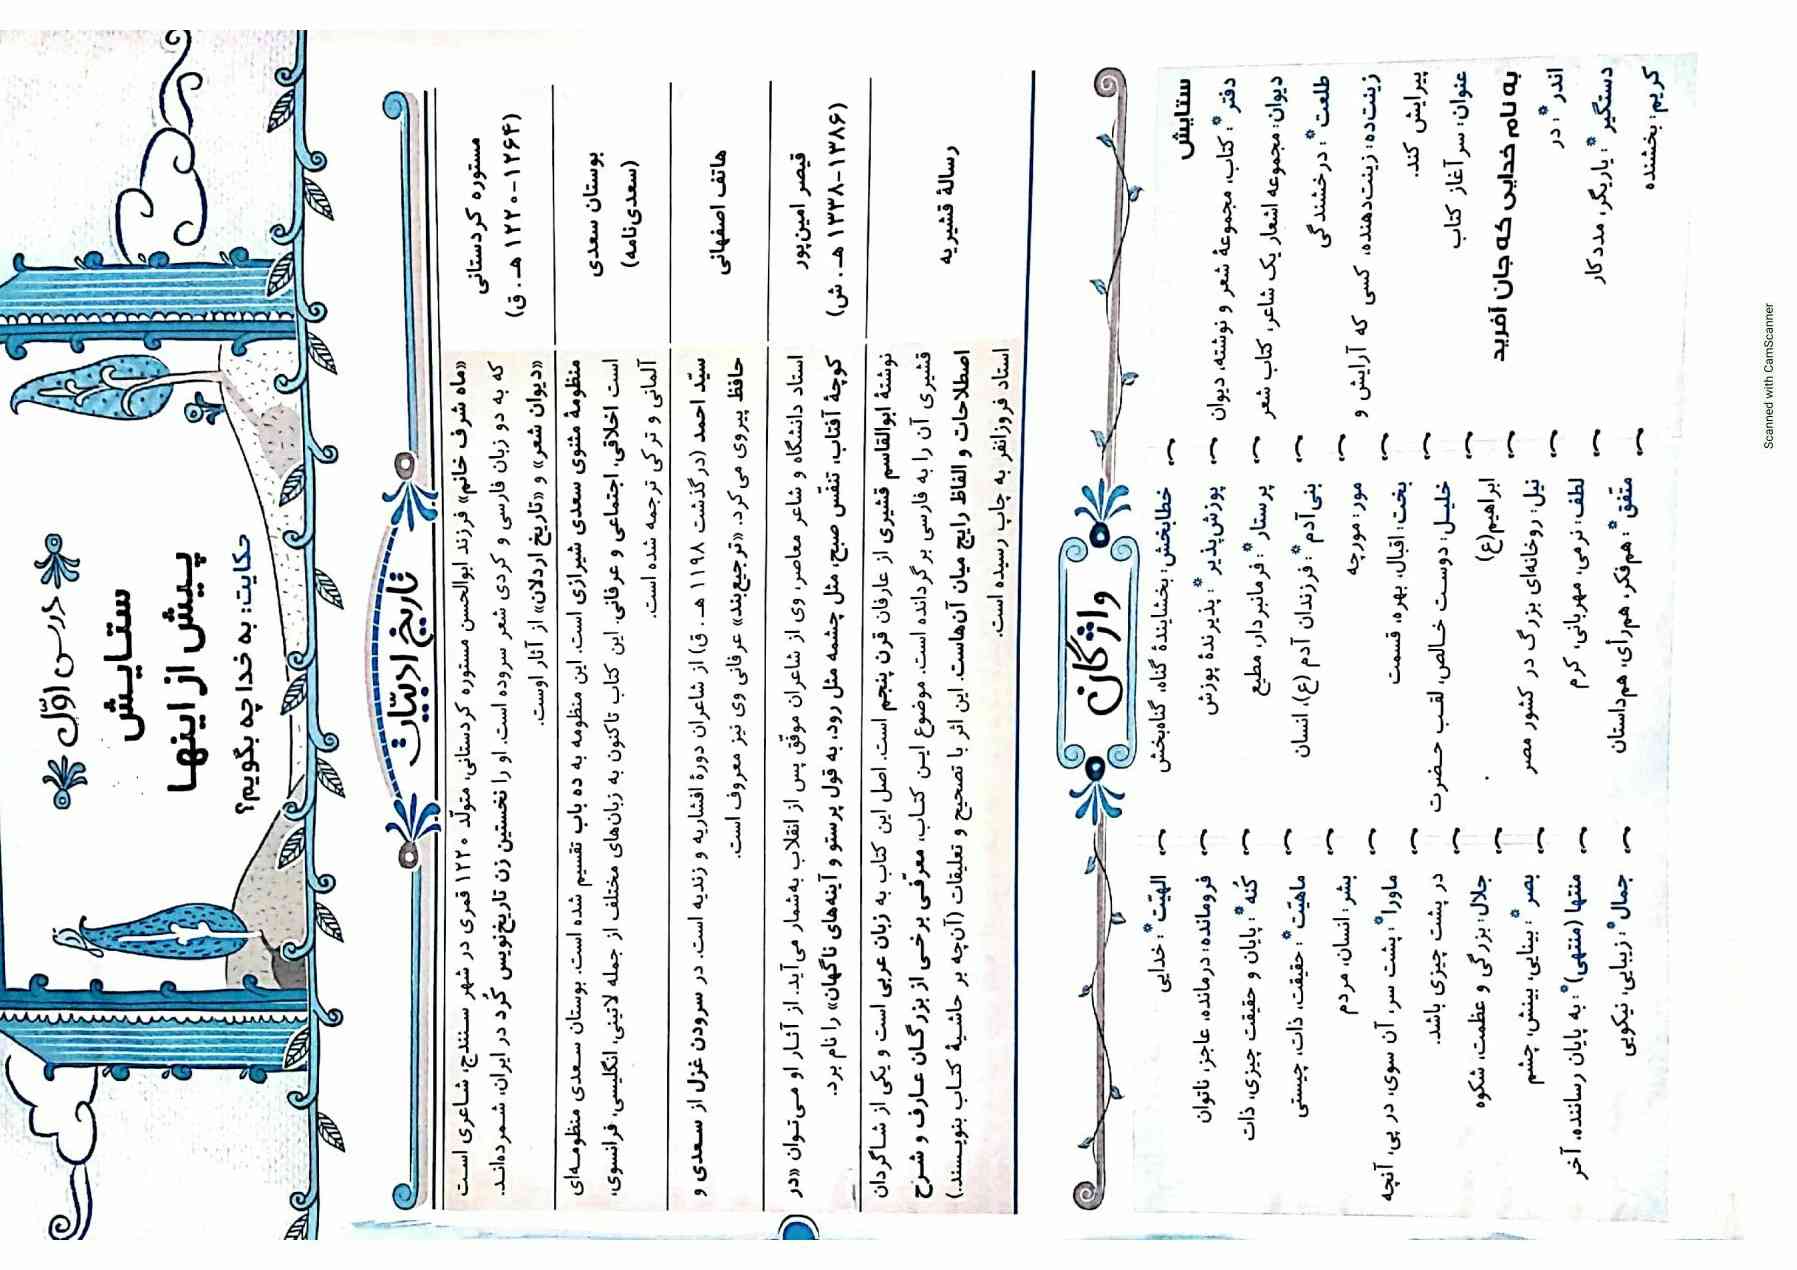 درس اوّل
ستایش
پیش از اینها
حکایت: به خدا چه بگویم؟
تاریخ ادبیّات
مستوره کردستانی
(۱۲۲۰-۱۲۶۴ هـ . ق)
«ماه شرف خانم» فرزند ابوالحسن مستوره کردستانی، متولّد ۱۲۲۰ قمری در شهر سنندج، شاعری است
که به دو زبان فارسی و کردی شعر سروده است. او را نخستین زن تاریخ‌نویس کُرد در ایران، شمرده‌اند.
«دیوان شعر» و «تاریخ اردلان» از آثار اوست.
بوستان سعدی
(سعدی‌نامه)
منظومهٔ مثنوی سعدی شیرازی است. این منظومه به ده باب تقسیم شده است. بوستان سعدی منظومه‌ای
است اخلاقی، اجتماعی و عرفانی. این کتاب تاکنون به زبان‌های مختلف از جمله لاتینی، انگلیسی، فرانسوی،
آلمانی و ترکی ترجمه شده است.
هاتف اصفهانی
سیّد احمد (درگذشت ۱۱۹۸ هـ . ق) از شاعران دورهٔ افشاریه و زندیه است. در سرودن غزل از سعدی و
حافظ پیروی می‌کرد. «ترجیع‌بند» عرفانی وی نیز معروف است.
قیصر امین‌پور
(۱۳۳۸-۱۳۸۶ هـ . ش)
استاد دانشگاه و شاعر معاصر، وی از شاعران موفّق پس از انقلاب به‌شمار می‌آید. از آثار او می‌توان «در
کوچهٔ آفتاب، تنفّس صبح، مثل چشمه مثل رود، به قول پرستو و آینه‌های ناگهان» را نام برد.
رسالهٔ قشیریه
نوشتهٔ ابوالقاسم قشیری از عارفان قرن پنجم است. اصل این کتاب به زبان عربی است و یکی از شاگردان
قشیری آن را به فارسی برگردانده است. موضوع این کتاب، معرّفی برخی از بزرگان عارف و شرح
اصطلاحات و الفاظ رایج میان آن‌هاست. این اثر با تصحیح و تعلیقات (آن‌چه بر حاشیهٔ کتاب بنویسند.)
استاد فروزانفر به چاپ رسیده است.
واژگان
ستایش
دفتر*: کتاب، مجموعهٔ شعر و نوشته، دیوان
دیوان: مجموعه اشعار یک شاعر، کتاب شعر
طلعت*: درخشندگی
زینت‌ده: زینت‌دهنده، کسی که آرایش و
پیرایش کند.
عنوان: سرآغاز کتاب
به نام خدایی که جان آفرید
اندر*: در
دستگیر*: یاریگر، مددکار
کریم: بخشنده
خطابخش: بخشایندهٔ گناه، گناه‌بخش
پوزش‌پذیر*: پذیرندهٔ پوزش
پرستار*: فرمانبردار، مطیع
بنی‌آدم*: فرزندان آدم (ع)، انسان
مور: مورچه
بخت: اقبال، بهره، قسمت
خلیل: دوست خالص، لقب حضرت
ابراهیم(ع)
نیل: روخانه‌ای بزرگ در کشور مصر
لطف: نرمی، مهربانی، کرم
متفق*: هم‌فکر، هم‌رأی، هم‌داستان
الهیّت*: خدایی
فرومانده: درمانده، عاجز، ناتوان
کُنه*: پایان و حقیقت چیزی، ذات
ماهیّت*: حقیقت، ذات، چیستی
بشر: انسان، مردم
ماورا*: پشت سر، آن سوی، در پی، آنچه
در پشت چیزی باشد.
جلال: بزرگی و عظمت، شکوه
بصر*: بینایی، بینش، چشم
منتها (منتهی)*: به پایان رسانده، آخر
جمال*: زیبایی، نیکویی
Scanned with CamScanner